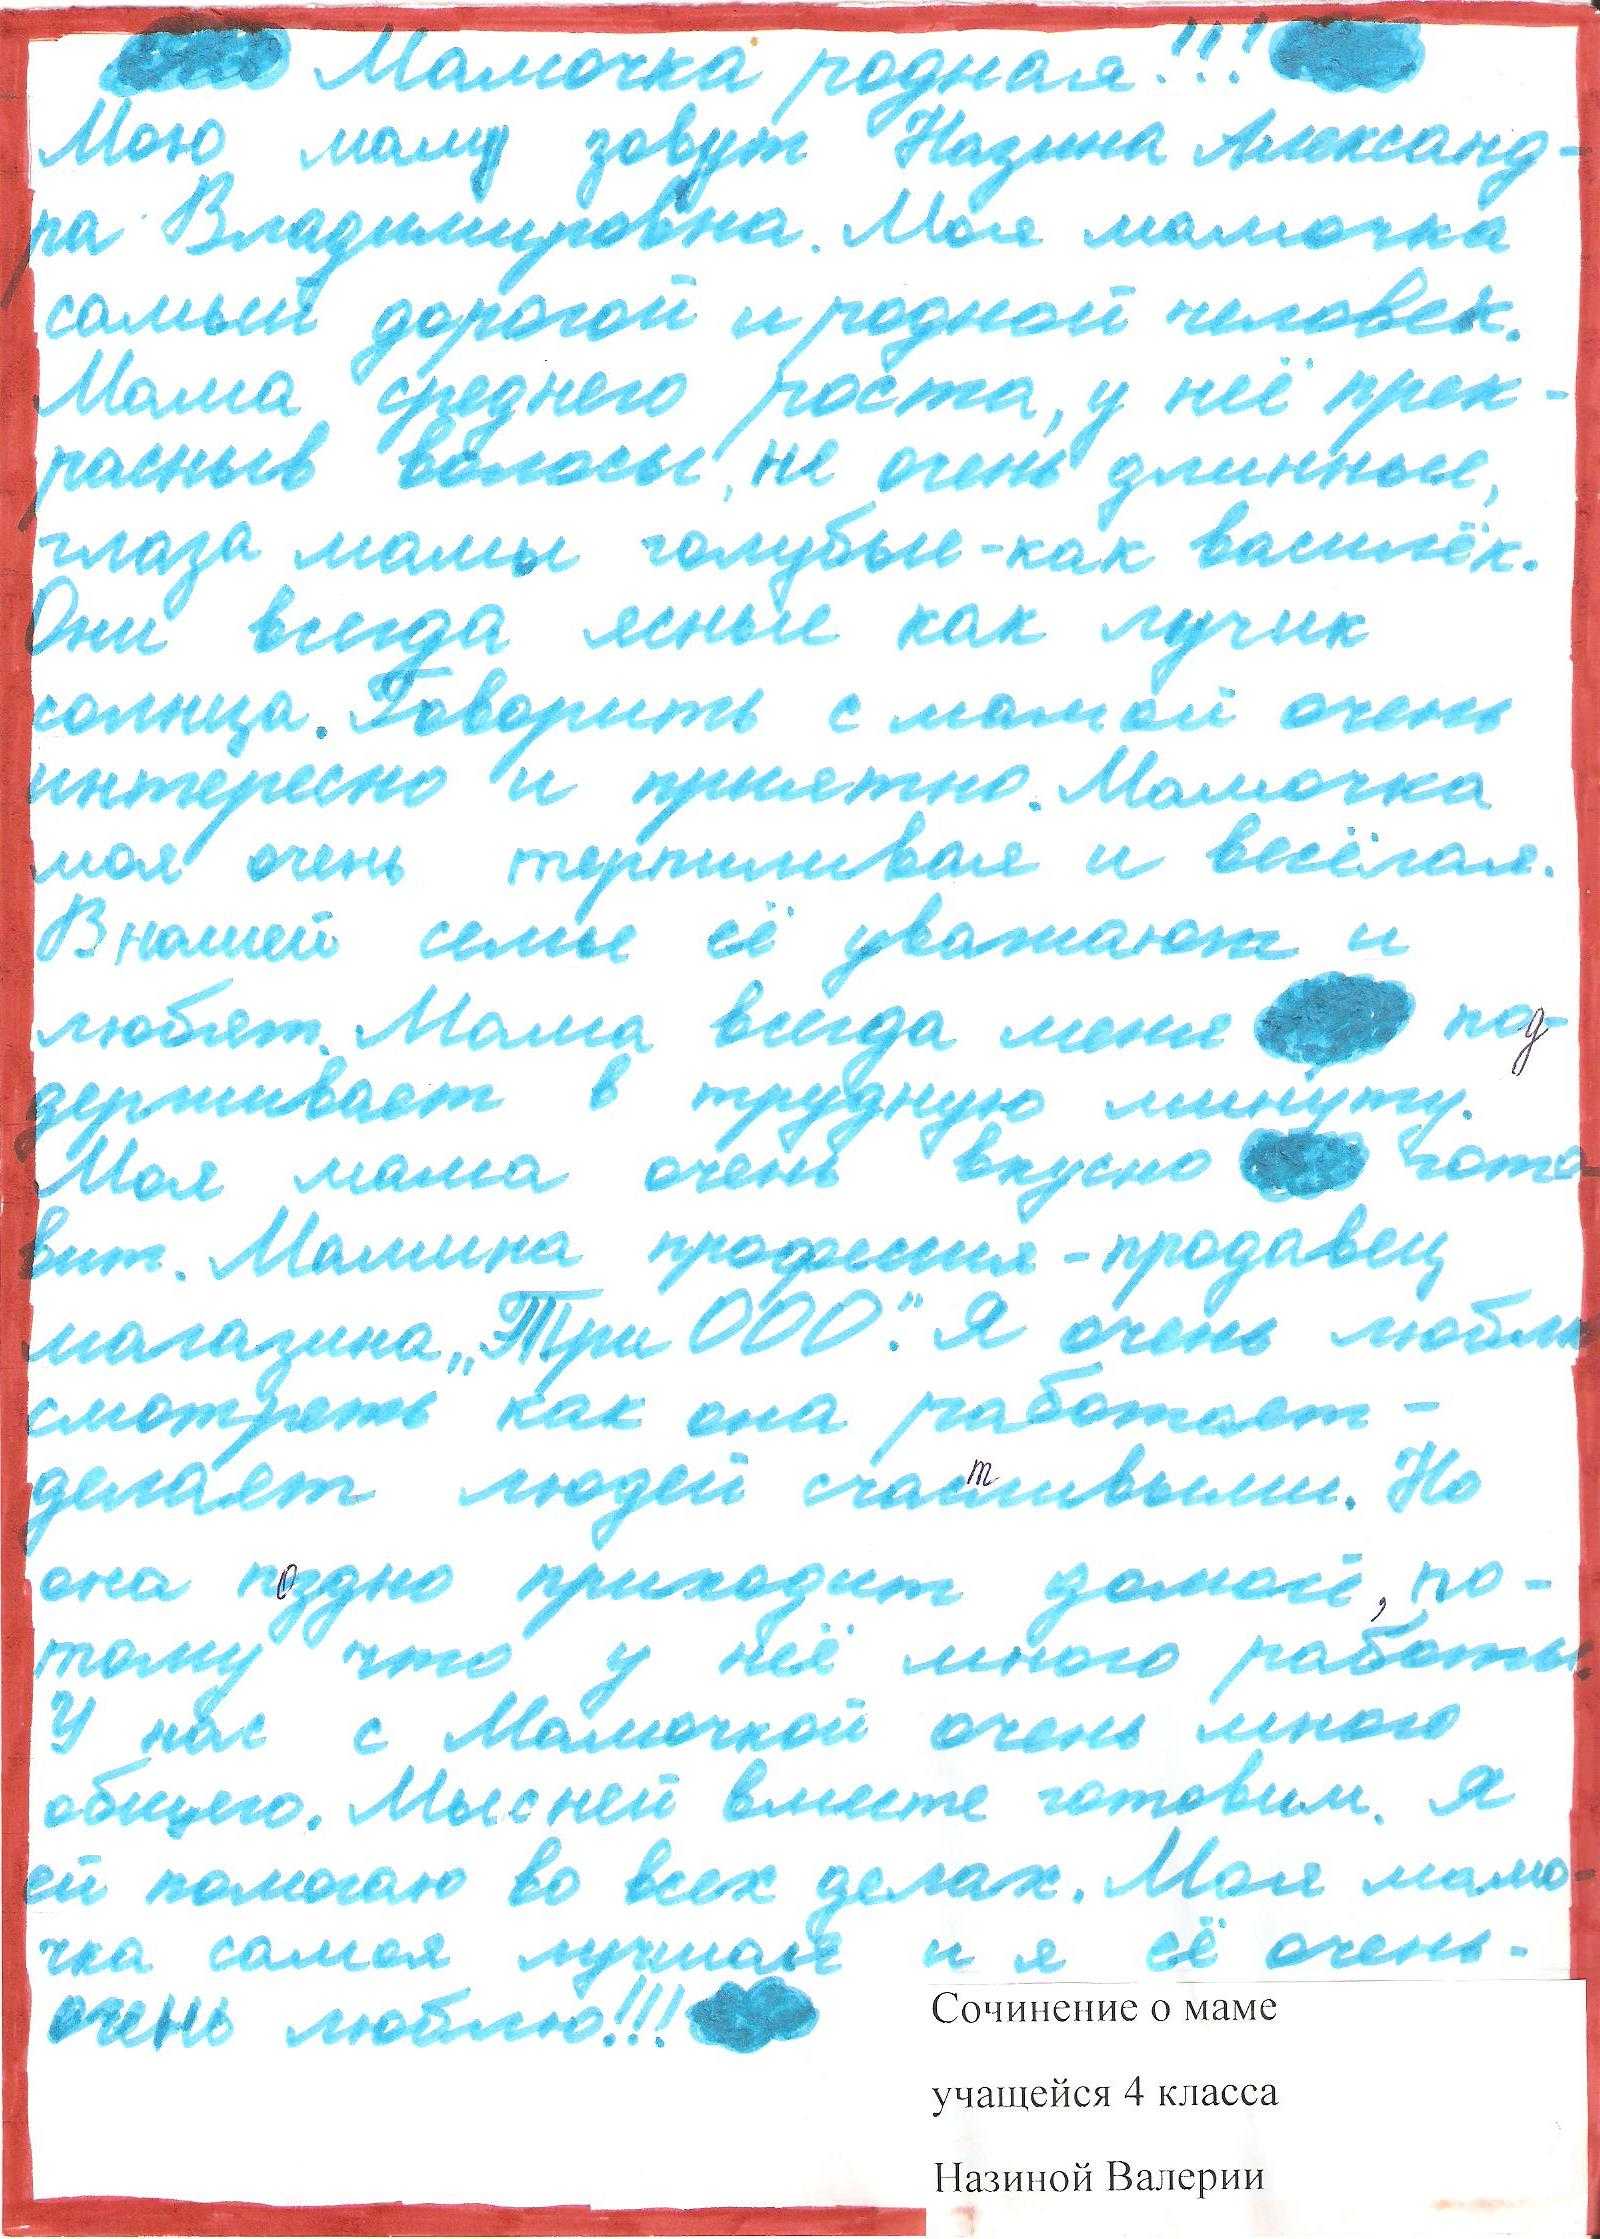 Мамочка родная!!!
Мою маму зовут Назина Александ-
ра Владимировна. Моя мамочка
самый дорогой и родной человек.
Мама среднего роста, у неё прек-
расные волосы, не очень длинные,
глаза мамы голубые - как василёк.
Они всегда ясные как лучик
солнца. Говорить с мамой очень
интересно и приятно. Мамочка
моя очень терпиливая и весёлая.
В нашей семье её уважают и
любят. Мама всегда меня под-
держивает в трудную минуту.
Моя мама очень вкусно гото
вит. Мамина профессия - продавец
магазина „Три ООО". Я очень люблю
смотреть как она работает -
делает людей счастливыми. Но
она поздно приходит домой, по-
тому что у неё много работы.
У нас с Мамочкой очень много
общего. Мы с ней вместе готовим. Я
ей помогаю во всех делах. Моя мамо-
чка самая лучшая и я её очень-
очень люблю!!!
Сочинение о маме
учащейся 4 класса
Назиной Валерии